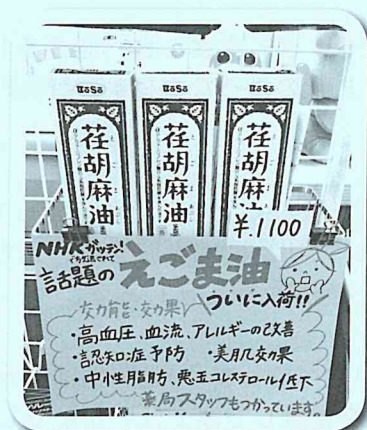 荏胡麻油
荏胡麻油
荏胡麻油
¥1100
NHKガッテン!
話題の えごま油
ついに入荷!!
効能・効果
・高血圧、血流、アレルギーの改善
・認知症予防 ・美肌効果
・中性脂肪、悪玉コレステロール低下
薬局スタッフもつかっています。